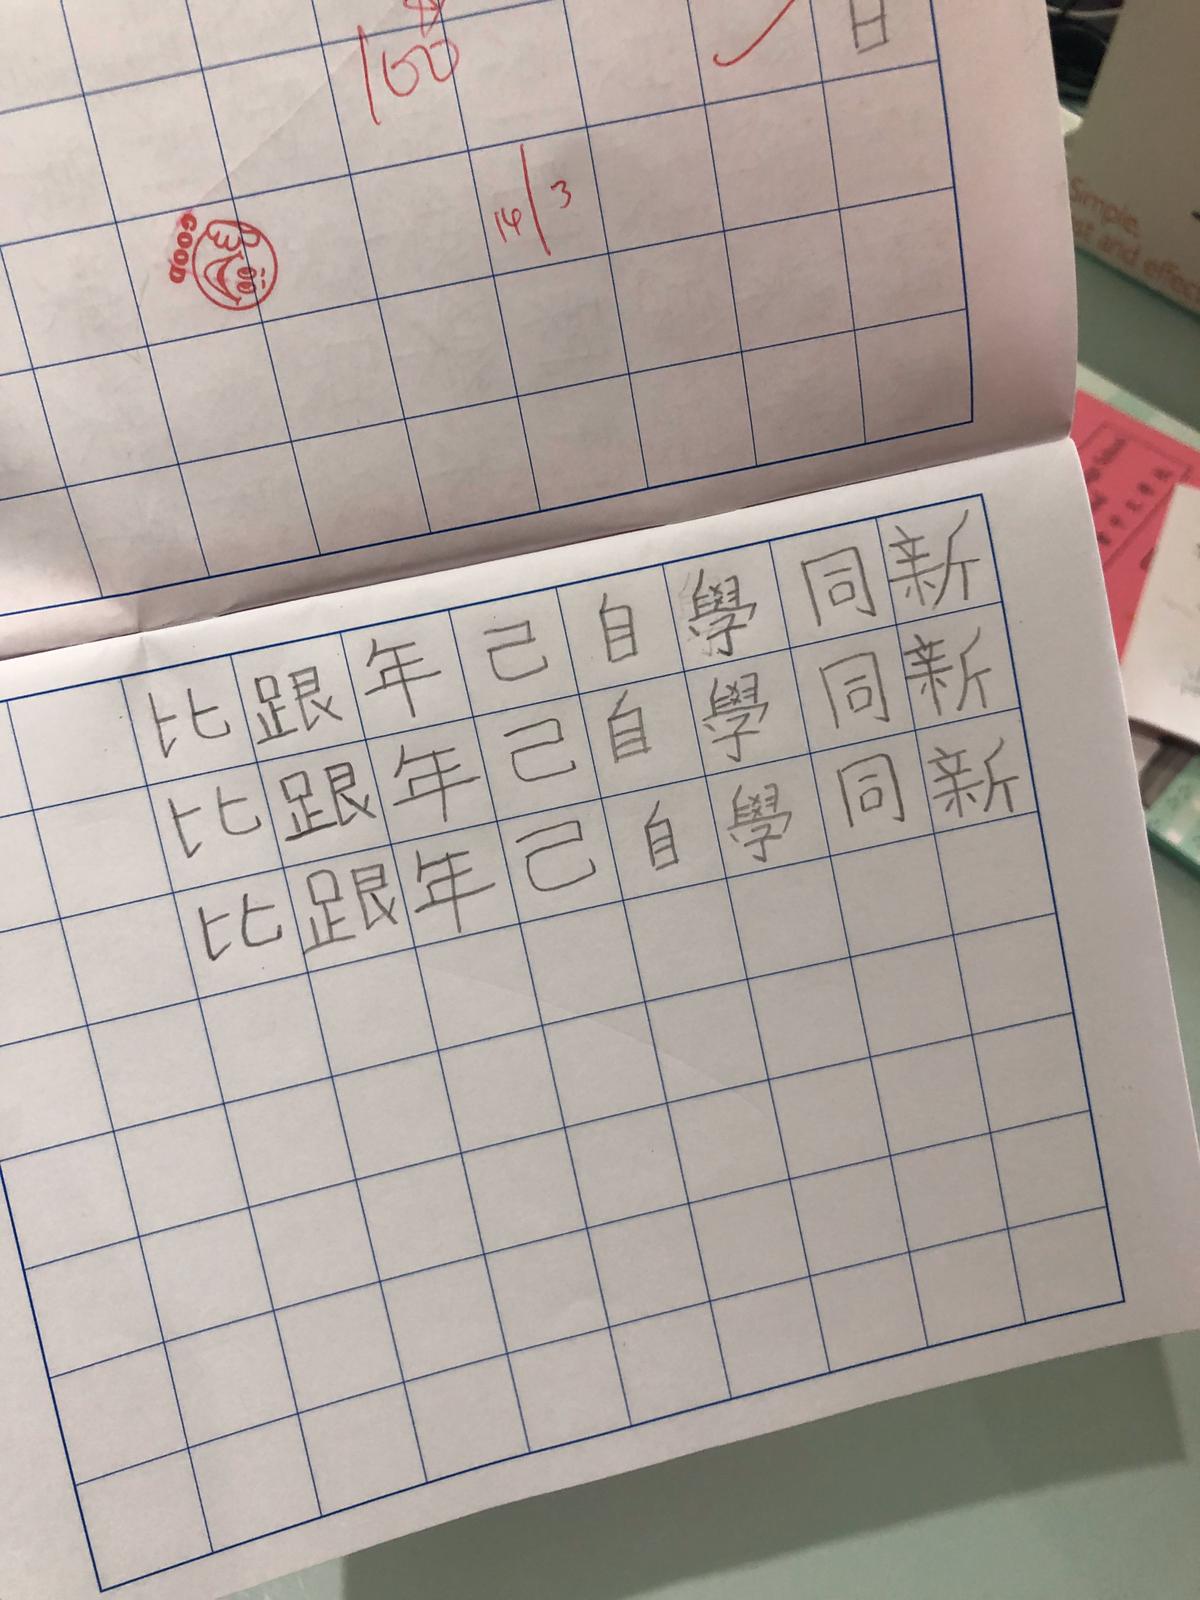 100
14/3
GOOD
新新新
同同同
學學學
自自自
己己己
年年年
跟跟跟
比比比
Simple,
and